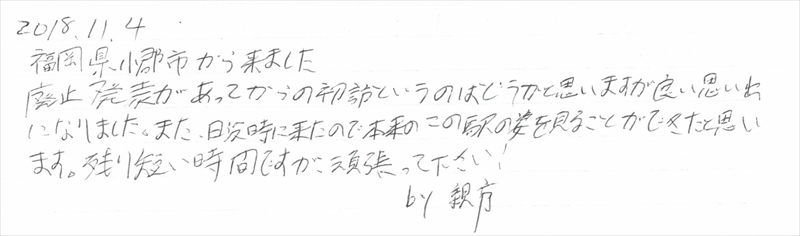 2018.11.4
福岡県小郡市から来ました
廃止発表があってからの初訪というのはどうかと思いますが良い思い出
になりました。また、日没時に来たので本来のこの駅の姿を見ることができたと思い
ます。残り短い時間ですが、頑張って下さい!
by 親方